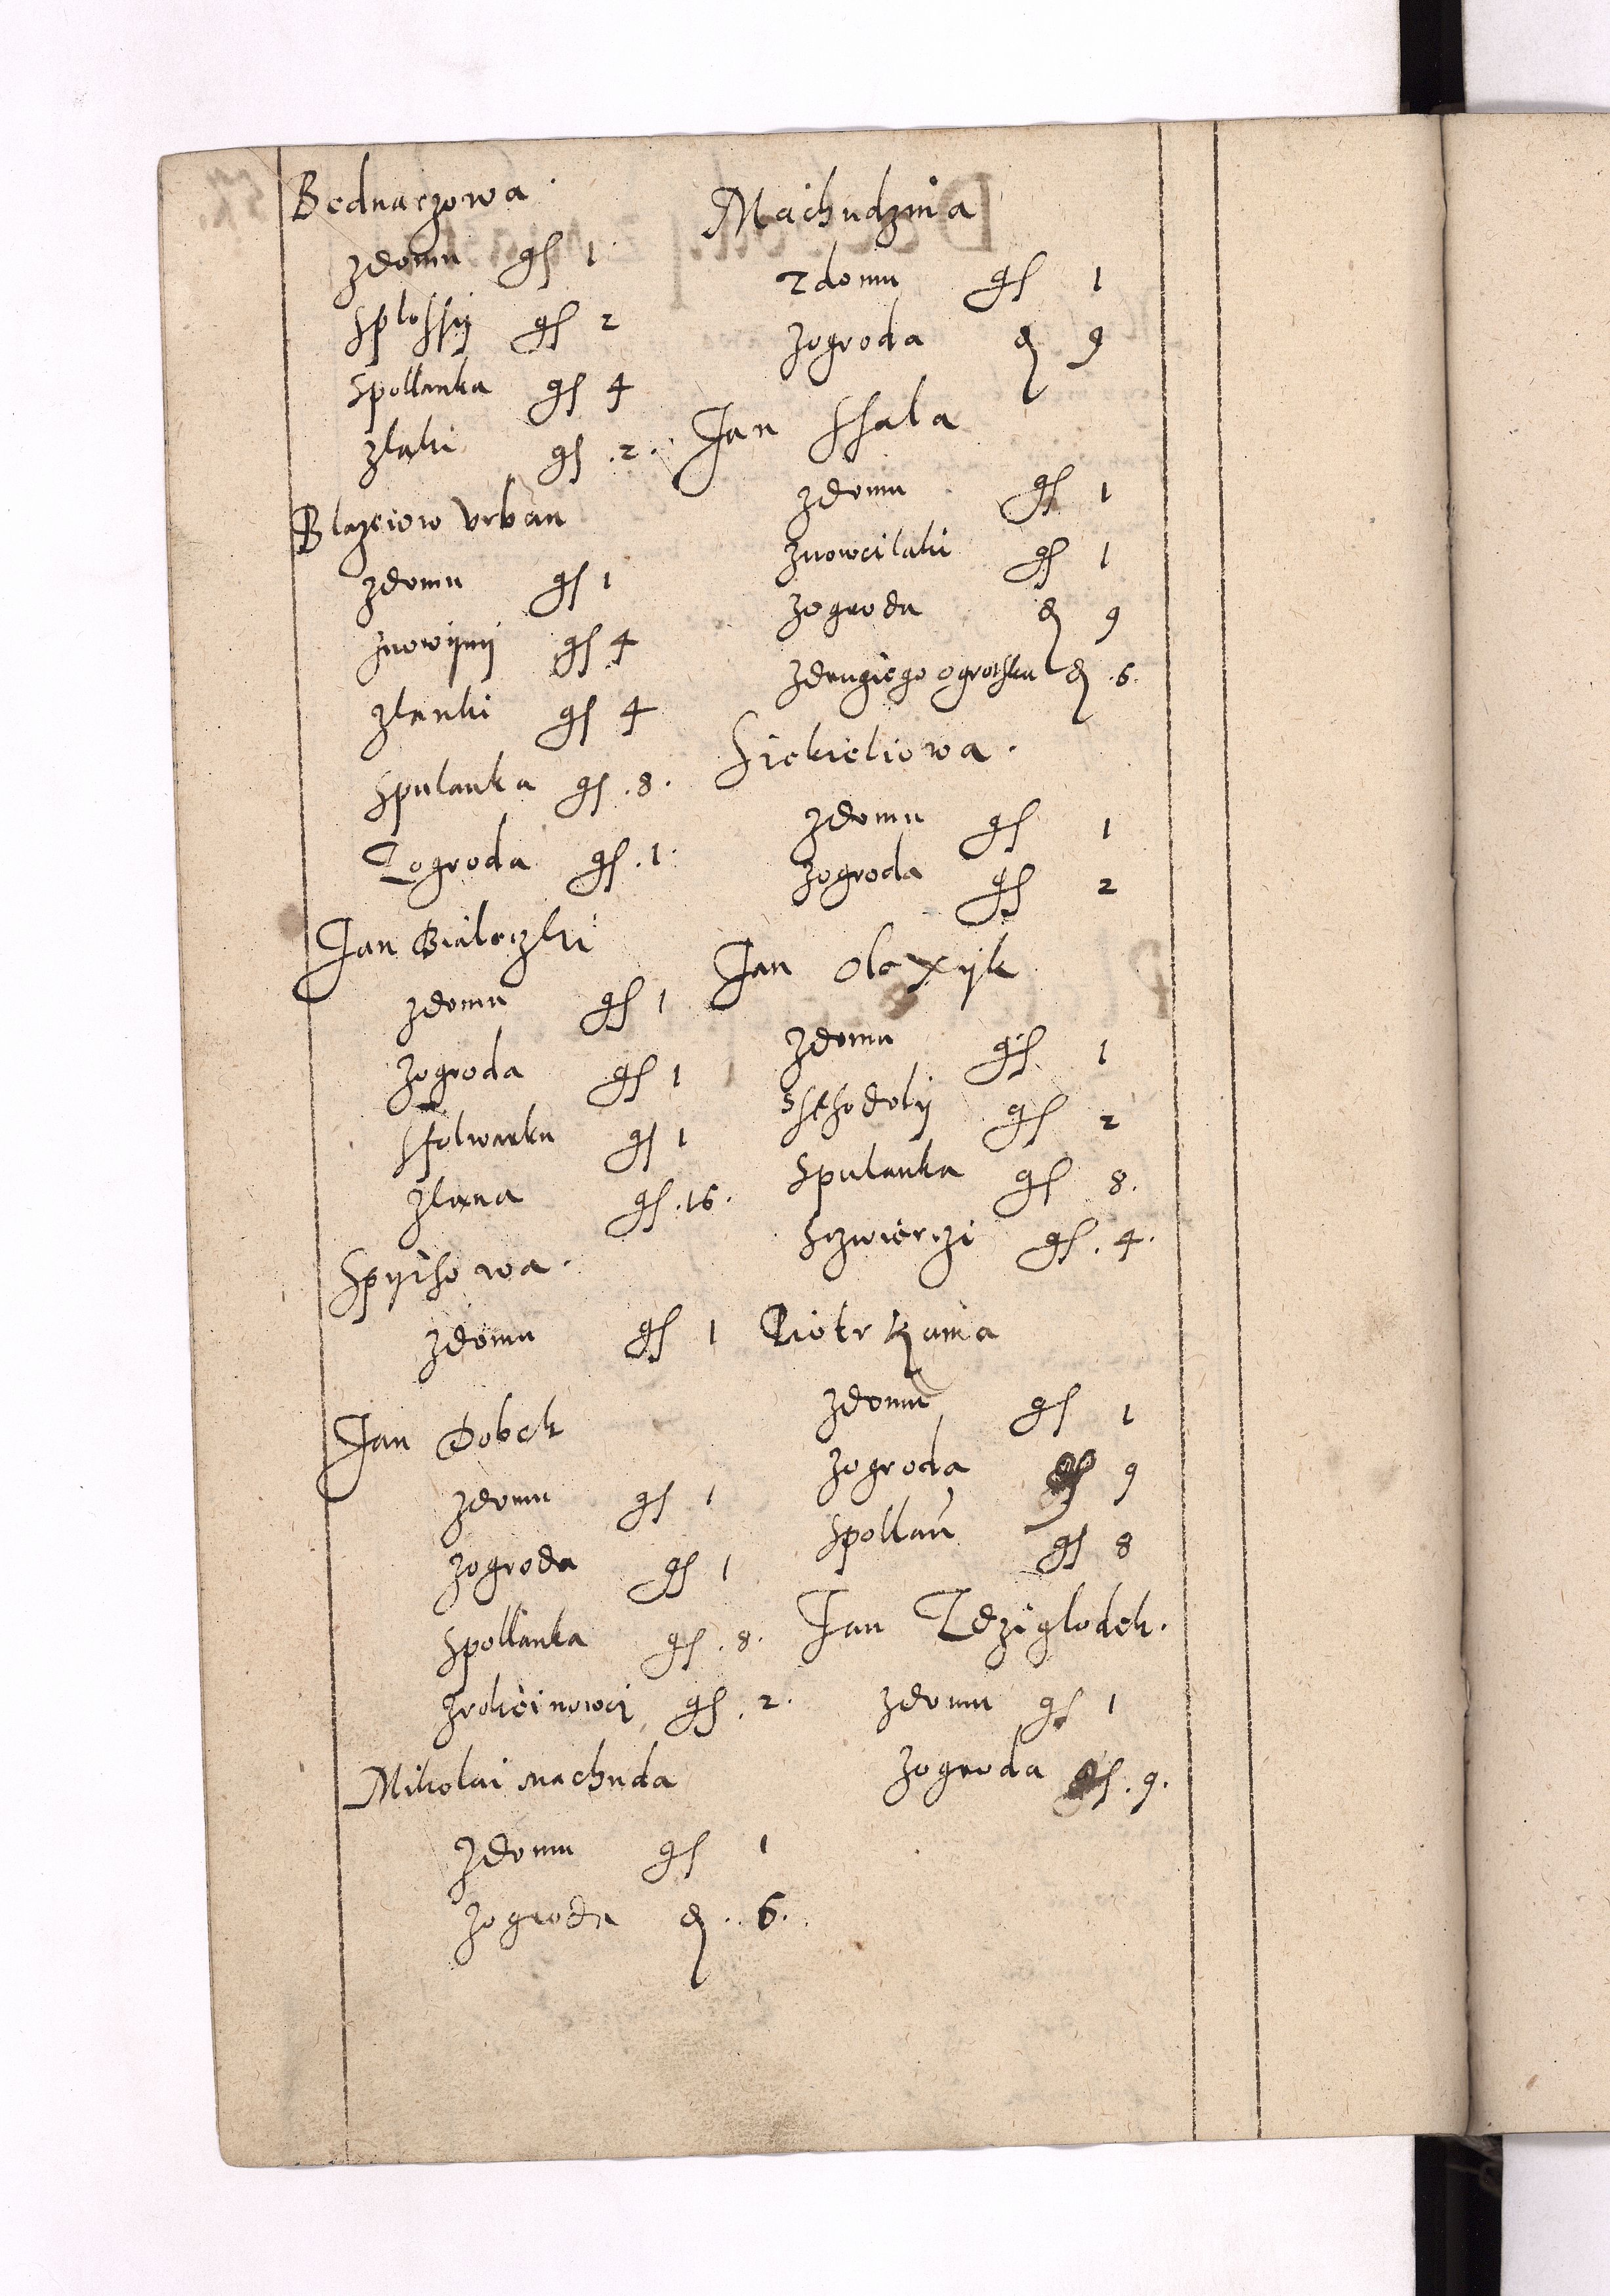 Bednarzowa.
zdomu gs 1
splossy gs 2
spollanka gs 4
zlaki gs .2.
Blazeiow Urban
zdomu gs 1
znowiny gs 4
zlanki gs 4
spulanka gs .8.
Zogroda gs .1.
Jan Bialeczki
zdomu gs 1
zogroda gs 1
sfolwarku gs 1
zlana gs .16.
Spytsowa.
zdomu gs 1
Jan Dobek
zdomu gs 1
zogroda gs 1
spollanka gs .8.
gs .2.
Mikolai Machuda
zdomu gs 1
zogroda d .6.
Machudzina
zdomu gs 1
zogroda d 9
Jan Ssala
zdomu gs 1
znowei laki gs 1
zogroda d 9
zdrugiego ogrodka d .6.
Siekieliowa.
zdomu gs 1
zogroda gs 2
Jan Olexyk
zdomu gs 1
gs 2
spulanka gs 8.
sczwierzi gs .4.
Piotr Kania
zdomu gs 1
zogroda 9
spollan gs 8
Jan Zdziglodek.
zdomu gs 1
zogroda .9.